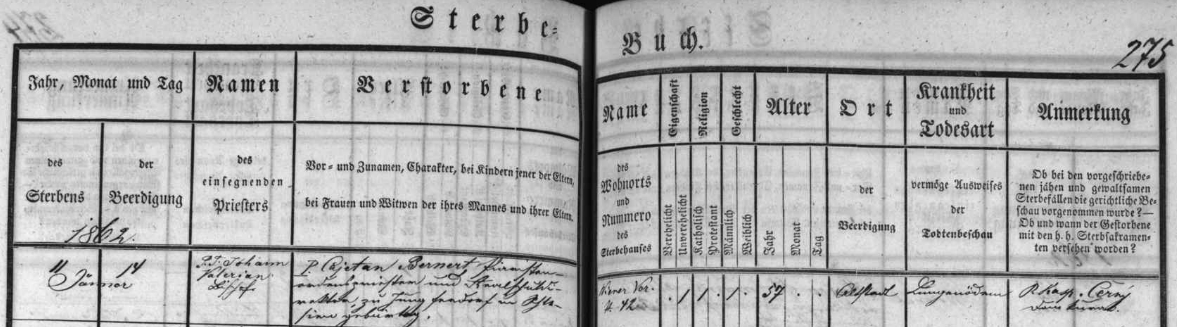 Sterbe-
Buch.
275
Jahr, Monat und Tag
Namen
Verstorbene
Name
Eigenschaft
Religion
Geschlecht
Alter
Ort
Krankheit
und
Todesart
Anmerkung
des
Sterbens
der
Beerdigung
des
einsegnenden
Priesters
Vor- und Zunamen, Charakter, bei Kindern jener der Eltern,
bei Frauen und Witwen der ihres Mannes und ihrer Eltern.
des
Wohnorts
und
Nummero
des
Sterbehauses
Verehelicht
Unverehelicht
Katholisch
Protestant
Männlich
Weiblich
Jahr
Monat
Tag
der
Beerdigung
vermöge Ausweises
der
Todtenbeschau
Ob bei den vorgeschriebe-
nen jähen und gewaltsamen
Sterbefällen die gerichtliche Be-
schau vorgenommen wurde? —
Ob und wann der Gestorbene
mit den h. h. Sterbsakramen-
ten versehen worden?
1862.
11 14
Jänner
Johann
Valerian
Bischof
P. Cajetan Bernert, Piaristen-
ordenspriester und Realschul-
gebürtig.
Wiener Vor.
42
. / / . / .
57 . .
Lungenödem
P. Kasp. Černý